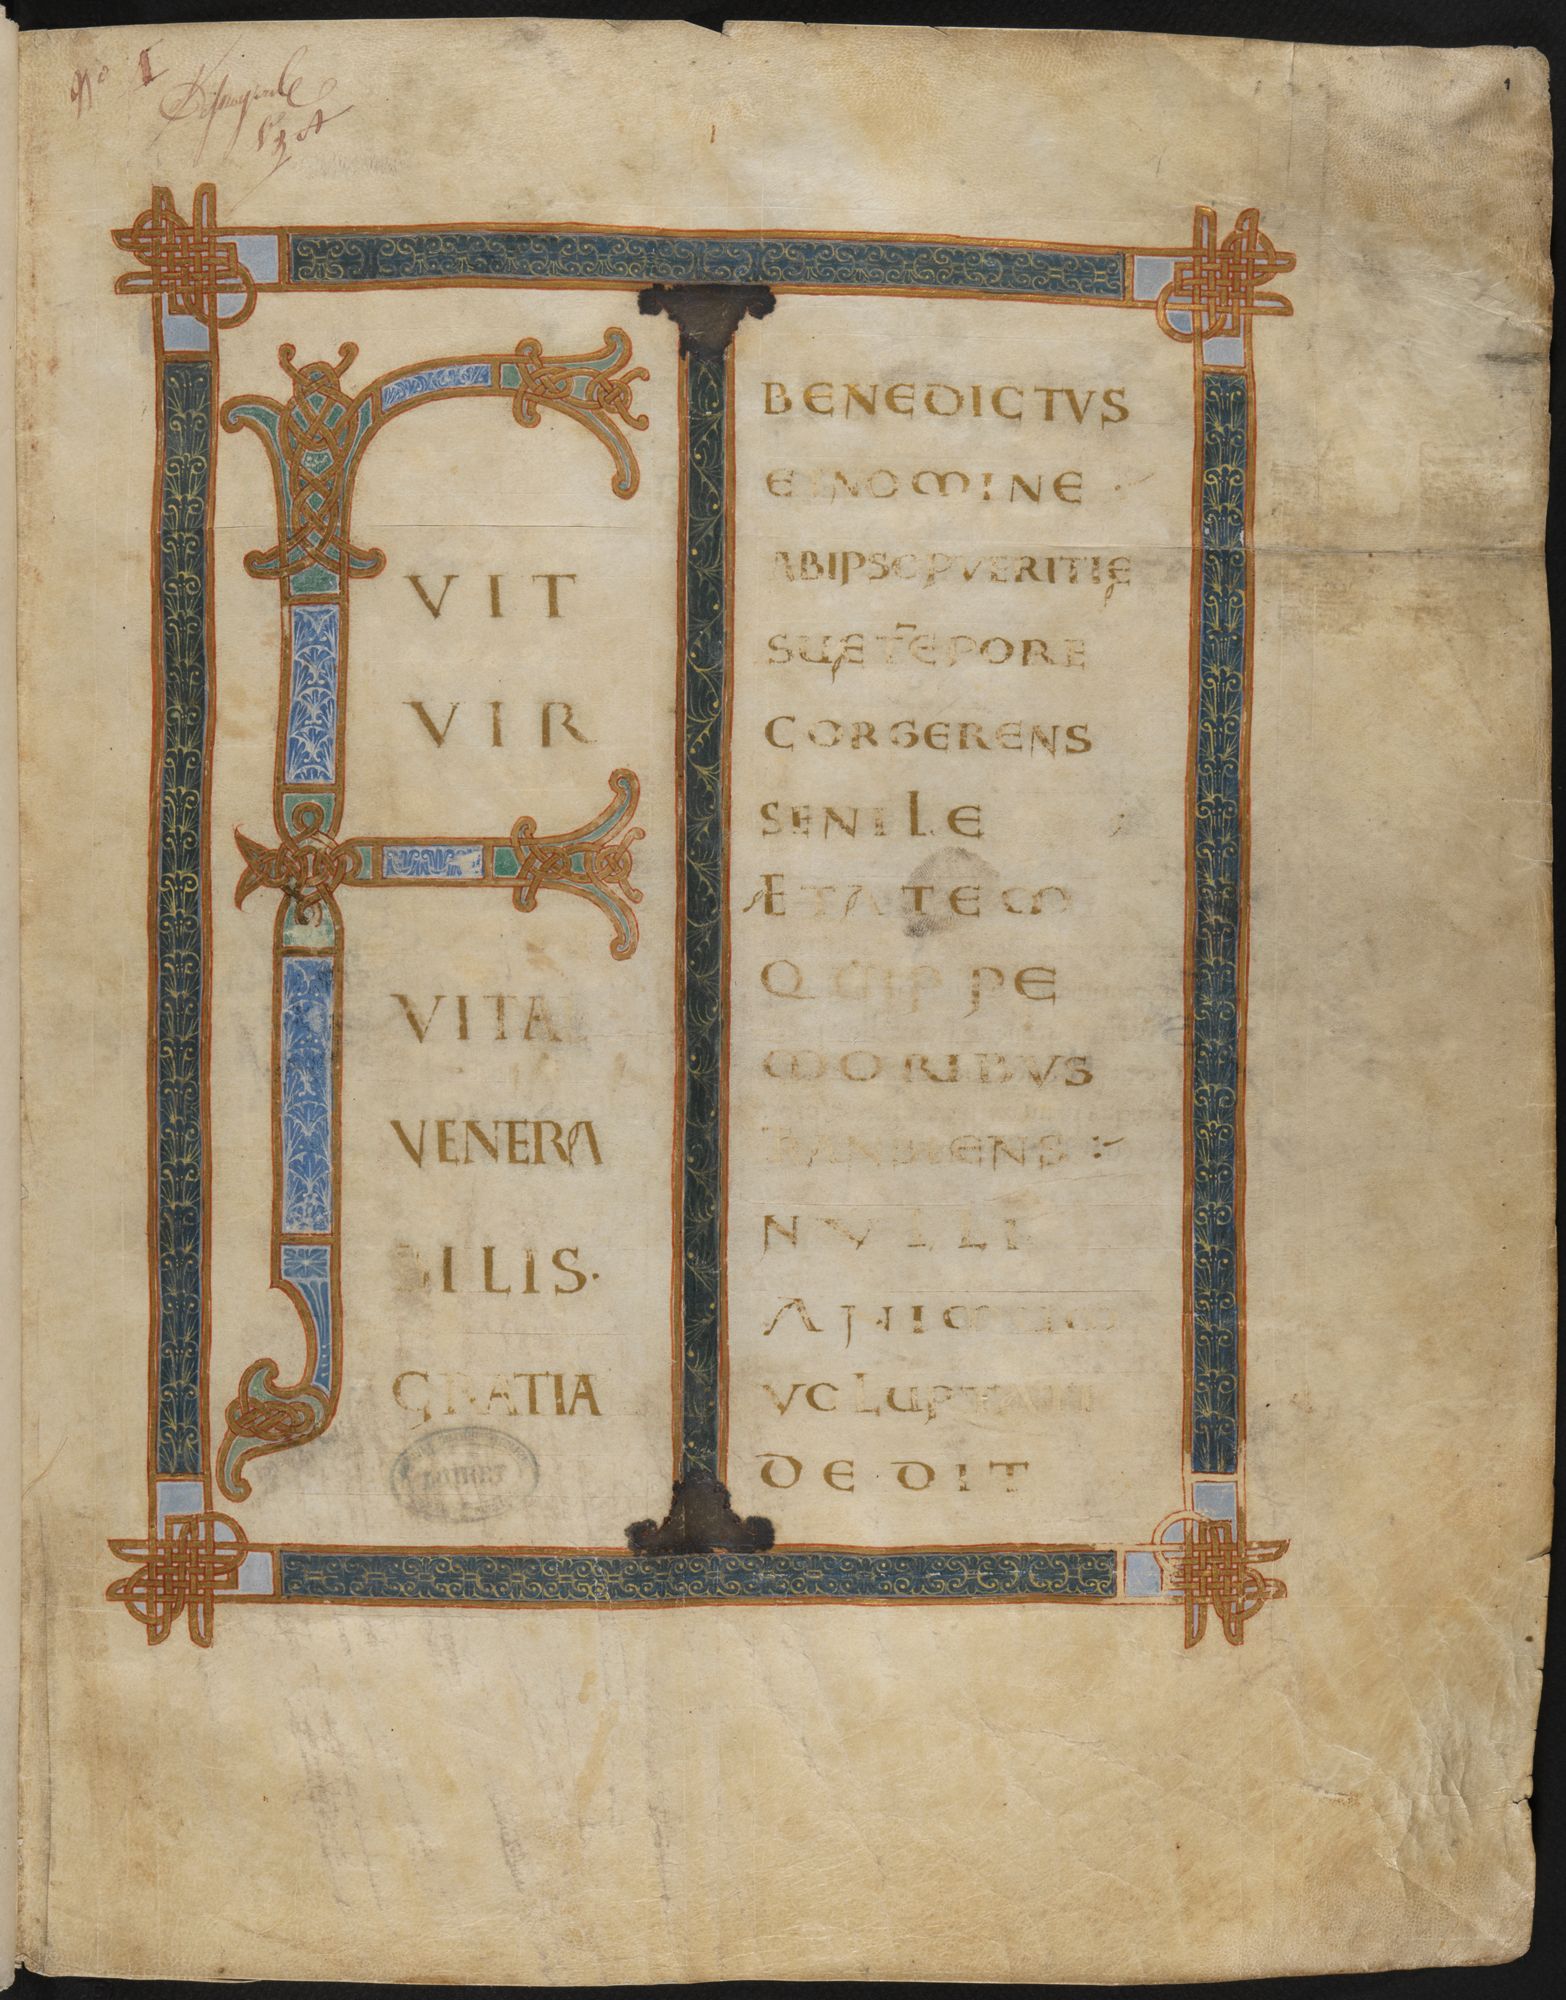 Nº I
1
F
VIT
VIR
VITAE
VENERA
BILIS·
GRATIA
BENEDICTVS
ET NOMINE
AB IPSO PVERITIĘ
SUĘ TE᷒PORE
COR GERENS
SENILE
ÆTATEM
QUIPPE
MORIBVS
TRANSIENS
NVLLI
ANIMUM
VOLUPTATI
DEDIT
LOIRET